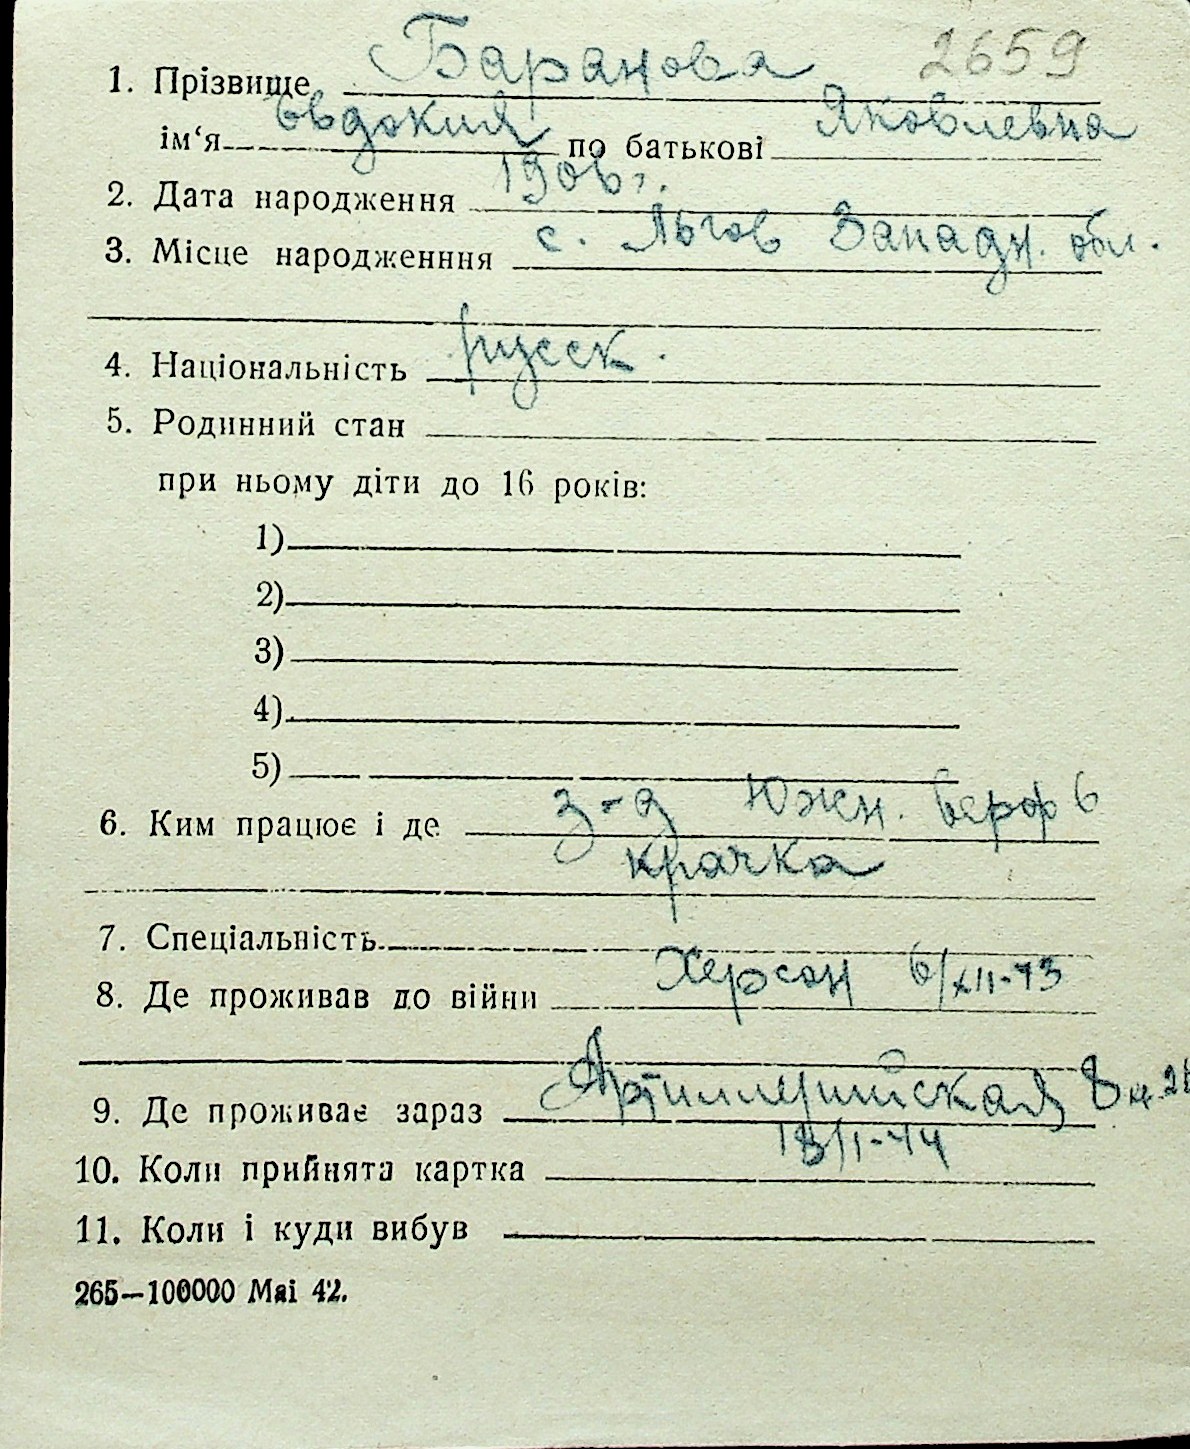 2659
1. Прізвище Баранова
ім‘я Евдокия по батькові Яковлевна
2. Дата народження 1906 г.
3. Місце народженння с. Льгов Западн. обл.
4. Національність русск.
5. Родинний стан
при ньому діти до 16 років:
1)
2)
3)
4)
5)
6. Ким працює і де з-д Южн.
7. Спеціальність
8. Де проживав до війни Херсон 6/XII-43
9. Де проживає зараз Артиллерийская 8
10. Коли прийнята картка 18/I-44
11. Коли і куди вибув
265—100000 Маі 42.